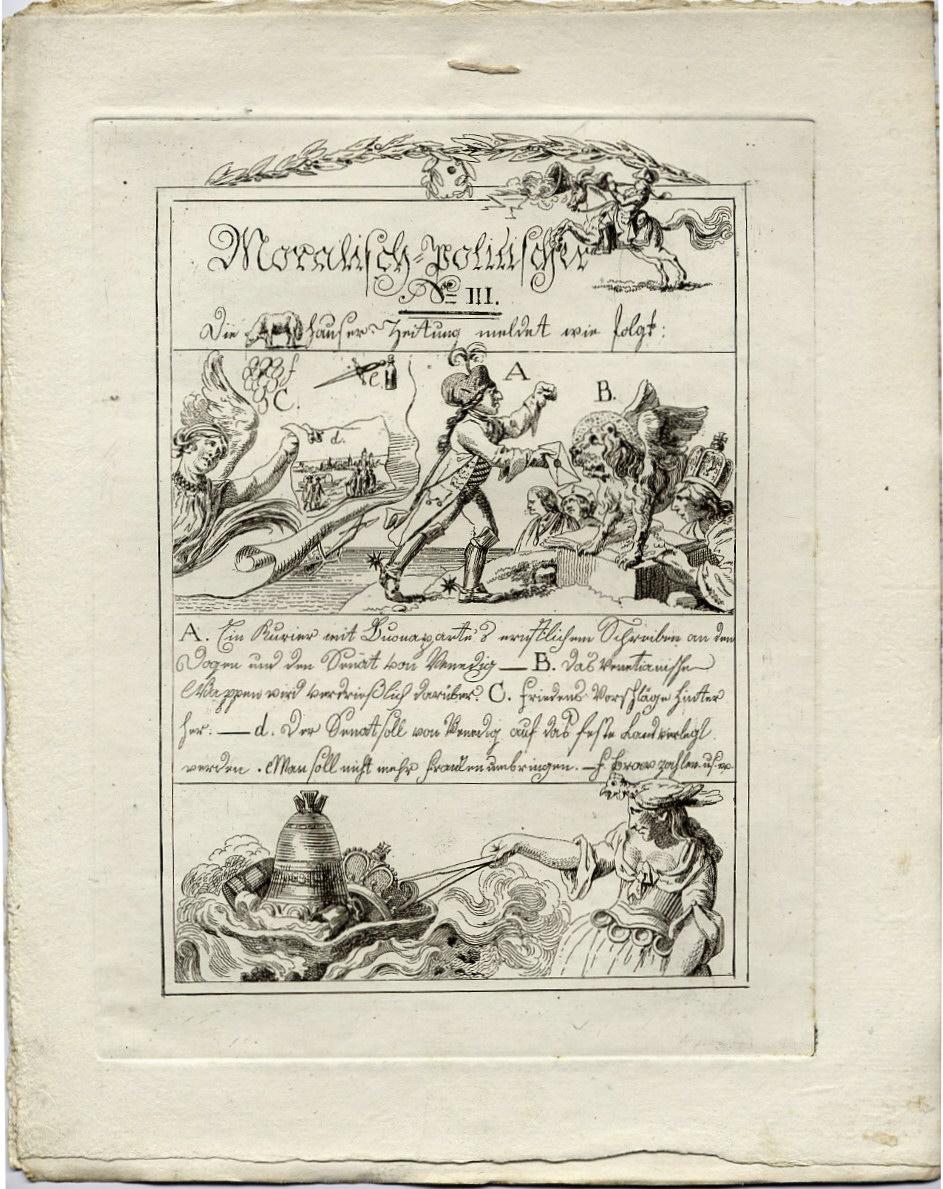 Moralisch-politischer
No III.
Die hauser Zeitung meldet wie folgt:
f
e
C.
A
B.
d.
A. Ein Kurier mit Buonaparte's ernstlichem Schreiben an den
Dogen und den Senat von Venedig — B. das Venetianische
Wappen wird verdrießlich darüber. C. Friedens Vorschläge hinter
her: — d. Der Senat soll von Venedig auf das feste Land verlegt
werden. e Man soll nicht mehr umbringen. — f zahlen u.s.w.